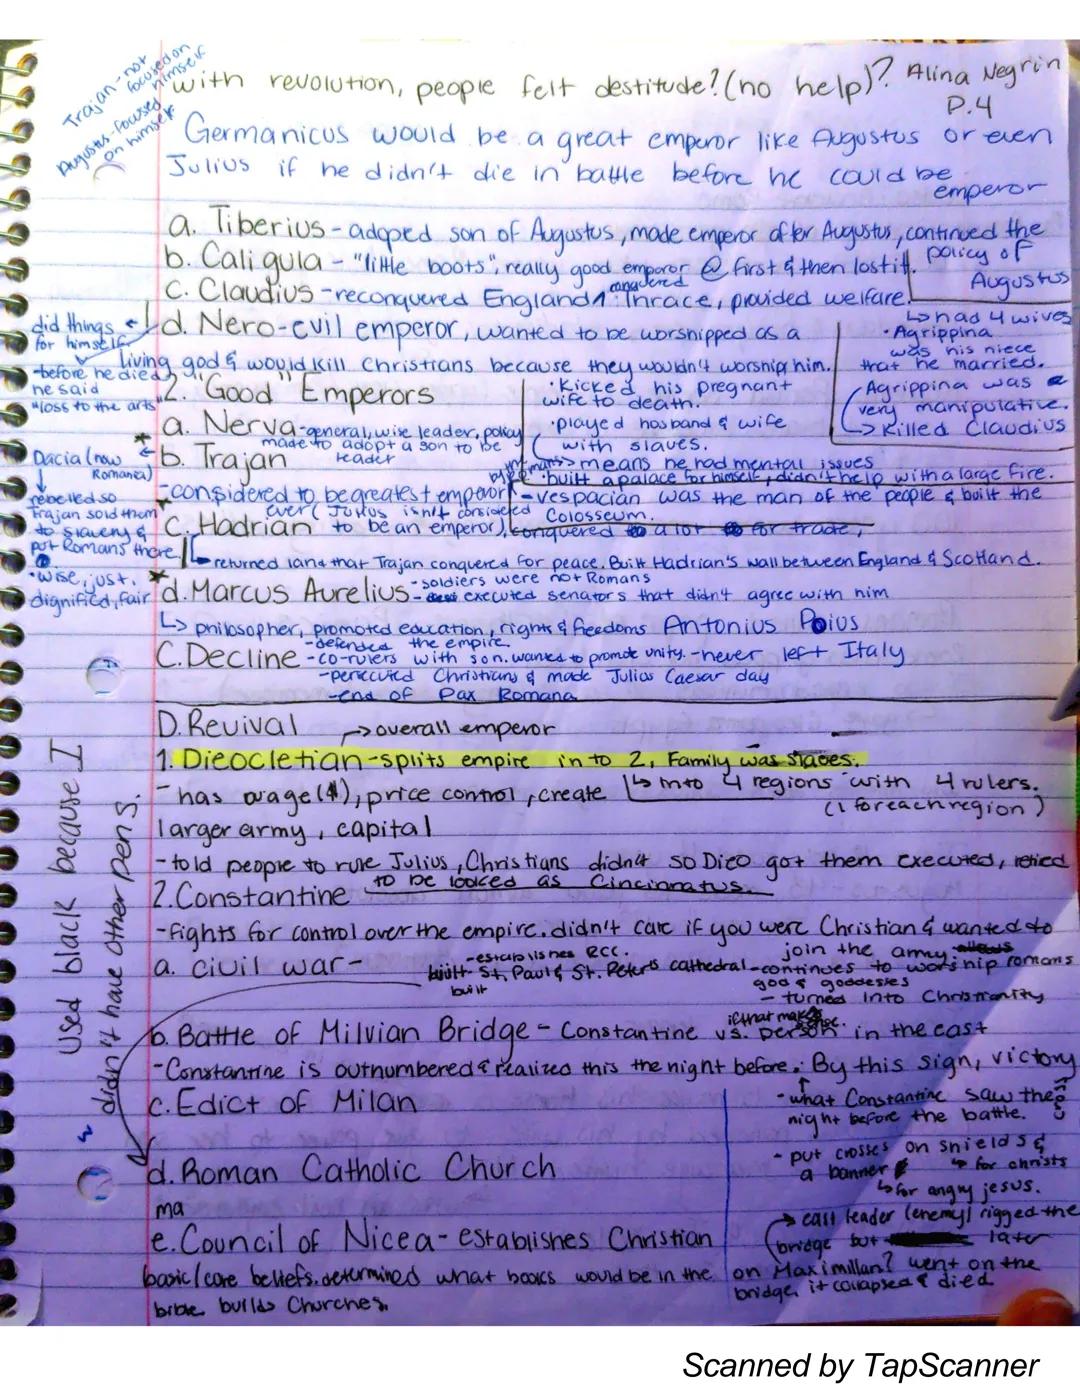 Trajan - not
focused on
himself
Augustus-focused
on himself
with revolution, people felt destitude?(no help)?
Alina Negrin
P.4
Germanicus would be a great emperor like Augustus or even
Julius if he didn't die in battle before he could be
emperor
a. Tiberius - adoped son of Augustus, made emperor after Augustus, continued the
policy of
Augustus
b. Caligula - "little boots", really good emperor @ first & then lost it.
c. Claudius - reconquered England ^ Thrace, provided welfare.
conquered
↳ had 4 wives
· Agrippina
was his niece
that he married.
Agrippina was a
very manipulative.
↳ Killed Claudius
d. Nero - evil emperor, wanted to be worshipped as a
living god & would kill Christians because they wouldn't worship him.
did things
for himself
-before he died,
he said
"loss to the arts"
· Kicked his pregnant
wife to death.
· played husband & wife
with slaves.
means he had mental issues
· built a palace for himself, didn't help with a large fire.
2. "Good" Emperors
a. Nerva - general, wise leader, policy
made to adopt a son to be
leader
b. Trajan
- considered to be greatest emperor
ever (Julius isn't considered
to be an emperor),
Dacia (now
Romania)
rebelled so
Trajan sold them
to slavery &
put Romans there.
- Vespacian was the man of the people & built the
Colosseum.
conquered a lot for trade,
c. Hadrian
↳ returned land that Trajan conquered for peace. Built Hadrian's wall between England & Scotland.
· wise, just,
dignified, fair
d. Marcus Aurelius
- soldiers were not Romans
- executed senators that didn't agree with him
↳ philosopher, promoted education, rights & freedoms Antonius Poius
- defended the empire.
C. Decline - co-rulers with son. wanted to promote unity. - never left Italy
- persecuted Christians & made Julius Caesar day
- end of Pax Romana
D. Revival → overall emperor
1. Dieocletian - splits empire in to 2, Family was slaves.
↳ into 4 regions with 4 rulers.
(1 for each region)
- has wage ($), price control, create
larger army, capital
- told people to rule Julius, Christians didn't so Dieo got them executed, retied
to be looked as Cincinnatus
2. Constantine
- fights for control over the empire. didn't care if you were Christian & wanted to
join the army.
a. civil war -
- establishes RCC.
built St. Paul & St. Peter's cathedral
built
- continues to worship romans
god & goddesses
- turned into Christianity
b. Battle of Milvian Bridge - Constantine vs. person in the east
if that makes sense.
- Constantine is outnumbered & realized this the night before. · By this sign, victory
- what Constantine saw the
night before the battle.
c. Edict of Milan
- put crosses on shields &
a banner
↳ for christs
↳ for angry jesus.
d. Roman Catholic Church
ma
→ east leader (enemy) rigged the
bridge but later
on Maximillan? went on the
bridge, it collapsed & died
e. Council of Nicea - establishes Christian
basic/core beliefs. determined what books would be in the
bible. builds Churches.
Used black because I
didn't have other pens.
Scanned by TapScanner